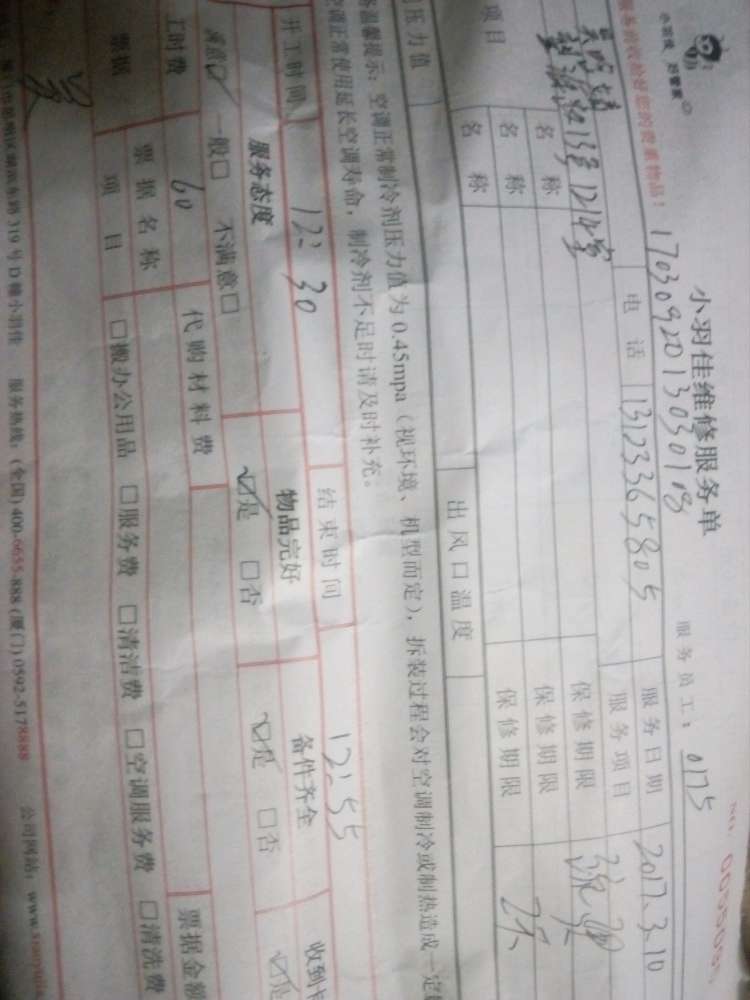 小羽佳维修服务单
小羽佳 好管家
服务前收拾好您的贵重物品!
170309201303018
服务员工: 0175
电话 13123365805 服务日期 2017.3.10
13号1214室
服务项目
项目 名称 保修期限
名称 保修期限
名称 保修期限
压力值 出风口温度
温馨提示: 空调正常制冷剂压力值为0.45mpa(视环境、机型而定), 拆装过程会对空调制冷或制热造成一定
空调正常使用延长空调寿命, 制冷剂不足时请及时补充。
开工时间 12:30 结束时间 12:55
服务态度 物品完好 备件齐全 收到
满意☑ 一般☐ 不满意☐ ☑是 ☐否 ☑是 ☐否 ☑是
工时费 60 代购材料费 票据金额
票据 票据名称 项目 ☐搬办公用品 ☐服务费 ☐清洁费 ☐空调服务费 ☐清洗费
319号D幢小羽佳 服务热线: (全国) 400-6655-888 (厦门) 0592-5178888 公司网站: